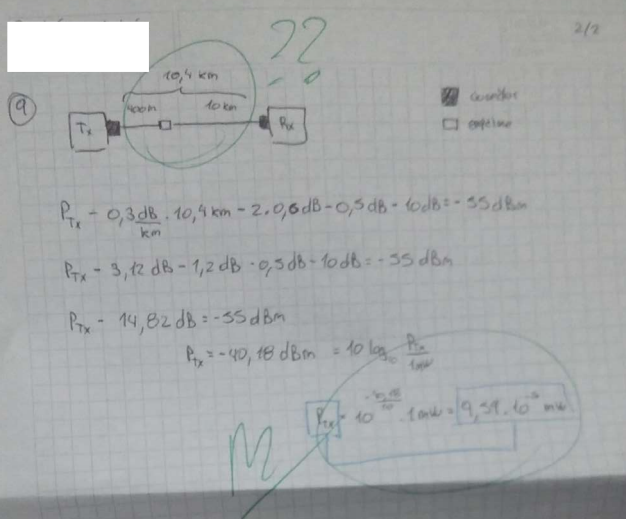 2/2
??
9
10,4 km
400m 10km
Tx Rx
conector
empalme
P_TX - 0,3 dB/km · 10,4 km - 2 · 0,6 dB - 0,5 dB - 10 dB = -55 dBm
P_TX - 3,12 dB - 1,2 dB - 0,5 dB - 10 dB = -55 dBm
P_TX - 14,82 dB = -55 dBm
P_TX = -40,18 dBm = 10 log₁₀ P_TX/1mW
P_TX = 10^(-40,18/10) · 1 mW = 9,59 · 10⁻⁵ mW
M